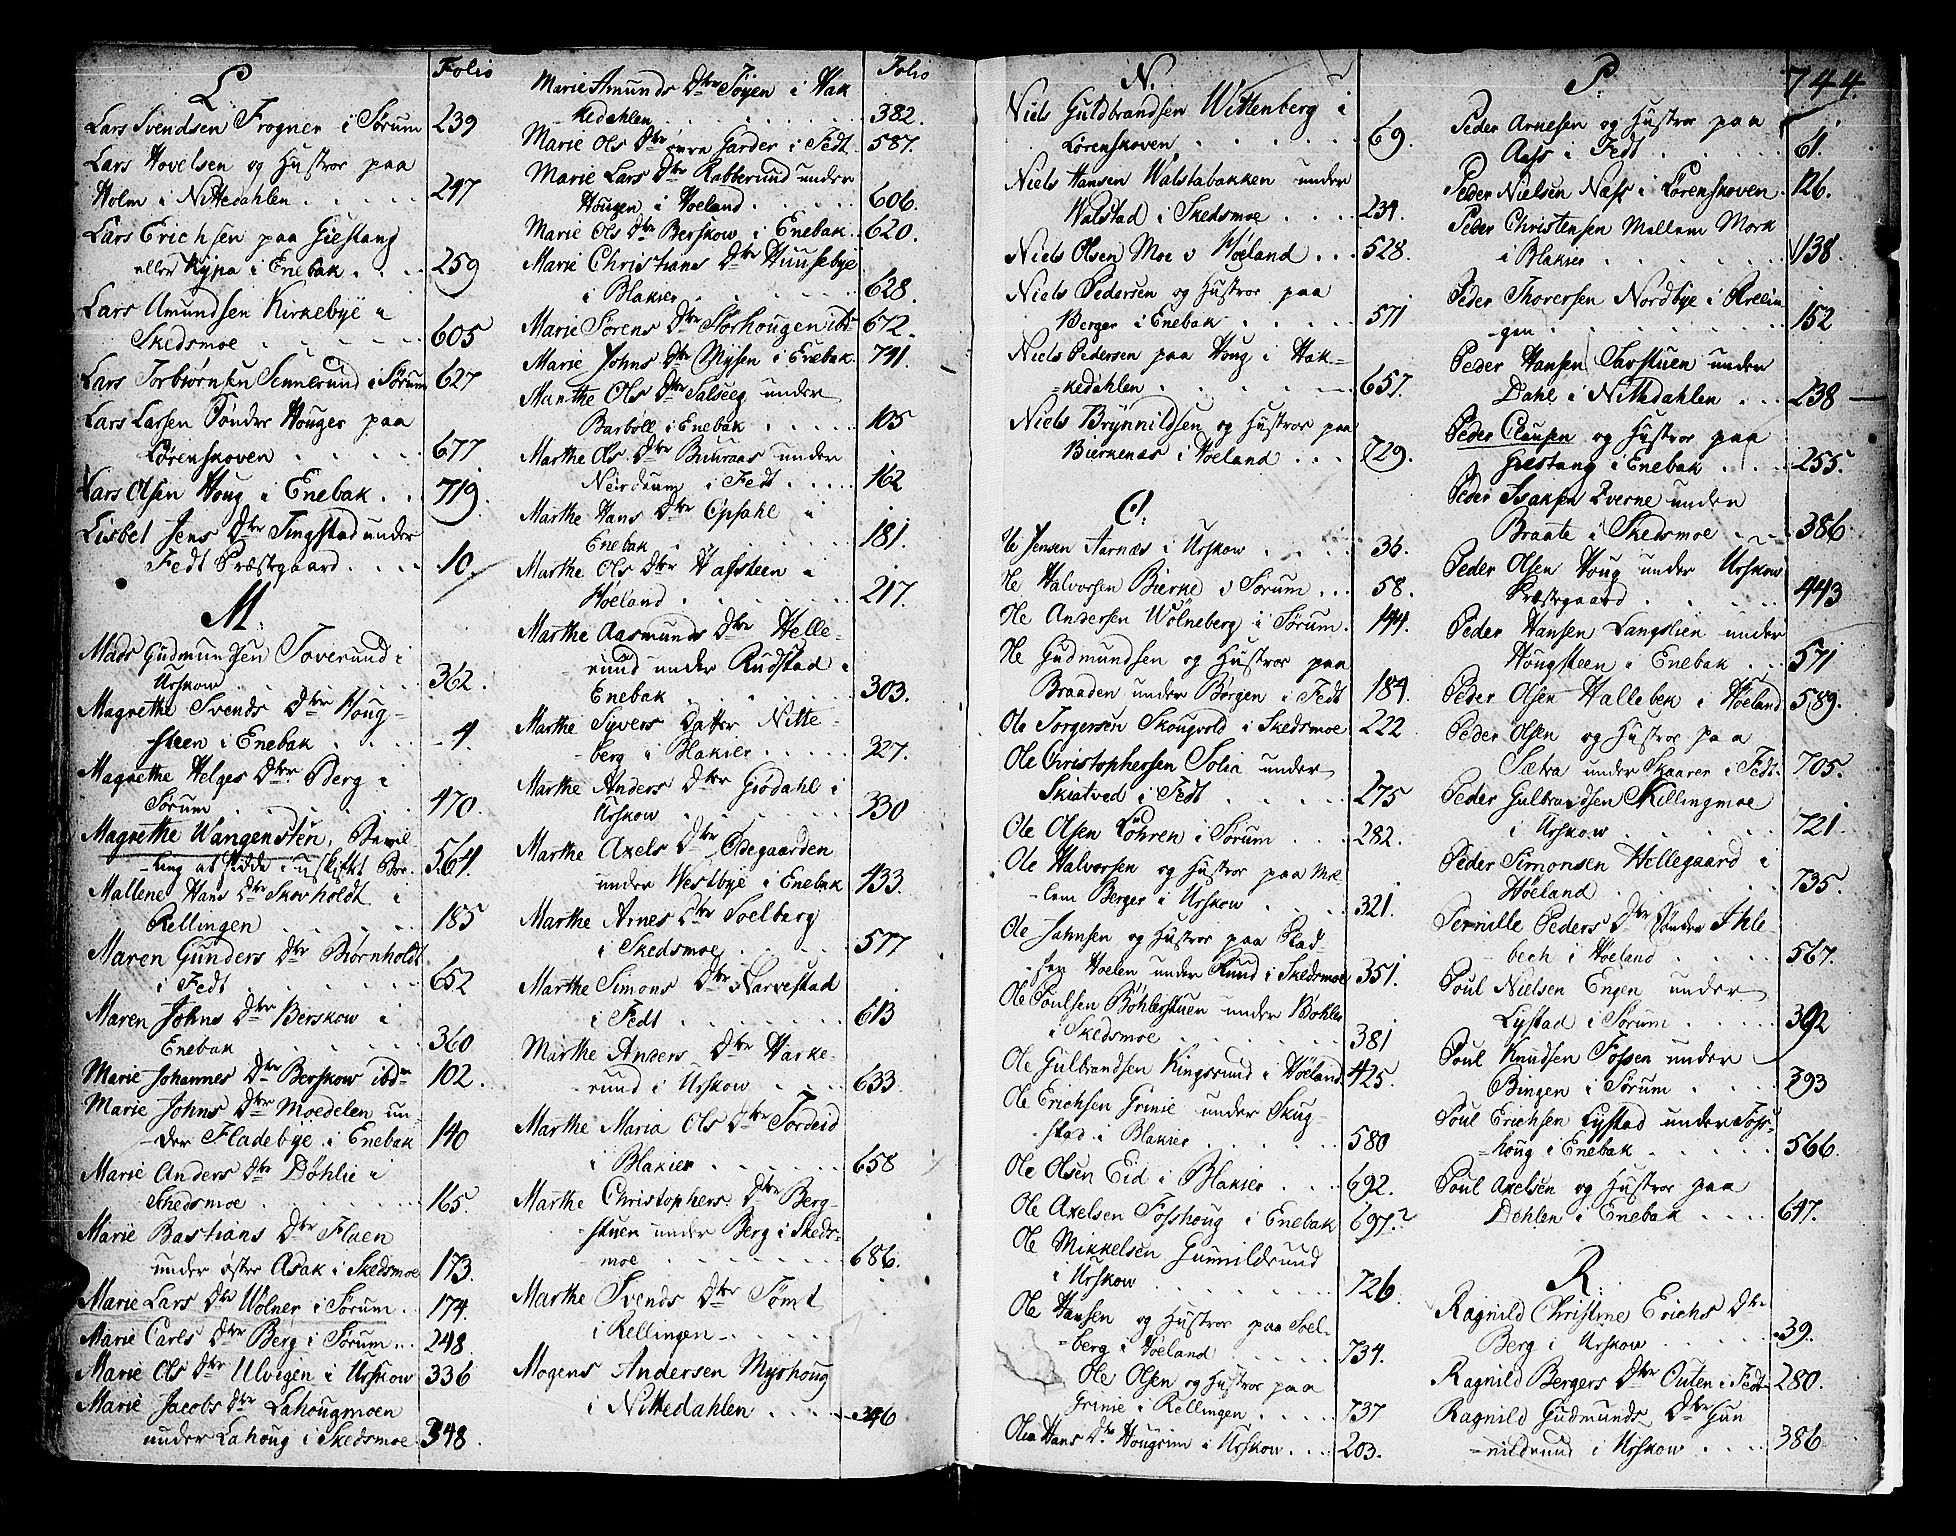 L Folio
Lars Svendsen Frogner i Sørum 239
Lars Hovelsen og Hustroe paa
Holm i Nittedahlen . . . . . 247
Lars Erichsen paa Giestang
eller Kÿpa i Enebak . . . 259
Lars Amundsen Kirkebÿe i
Skedsmoe . . . . . . 605
Lars Torbiørnsen Sennerund i Sørum 627
Lars Larsen Sønder Houger paa
Lørenskoven . . . . . 677
Lars Olsen Houg i Enebak . . 719.
Lisbet Jens Dtr Tingstad under
Fedt Præstgaard . . . . 10
M.
Mads Gudmundsen Toverund i
Urskow . . . . . . 362.
Magrethe Svends Dtr Houg-
-steen i Enebak . . . . 4.
Magrethe Helges Dtr Berg i
Sørum . . . . . . 470.
Magrethe Wangensten, Bevil-
-ling at sidde i uskiftet Boe. 564.
Mallene Hans Dtr Skovholdt i
Rellingen . . . . . . 185
Maren Gunders Dtr Biørnholdt
i Fedt . . . . . . 652
Maren Johns Dtr Berskow i
Enebak . . . . . . 360
Marie Johannes Dtr Berskow ibdm 102.
Marie Johns Dtr Moedelen un-
-der Fladebÿe i Enebak 140
Marie Anders Dtr Døhlie i
Skedsmoe . . . . . . 165.
Marie Bastians Dtr Flaen
under øster Asak i Skedsmoe 173.
Marie Lars Dtr Wølner i Sørum . . 174.
Marie Carls Dtr Berg i Sørum . . 248.
Marie Ols Dtr Ulvigen i Urskow 336
Marie Jacobs dtr Lahougmoen
under Lahoug i Skedsmoe 348.
Folio
Marie Amunds Dtr Tøyen i Hak
-kedahlen . . . . . . 382.
Marie Ols Dtr øvre Garder i Fedt. 587.
Marie Lars Dtr Rabberund under
Hougen i Høeland . . . . . 606.
Marie Ols Dtr Berskow i Enebak . . 620.
Marie Christians Dtr Huusebÿe
i Blakier . . . . . . 628.
Marie Sørens Dtr Størhougen ibd 672.
Marie Johns Dtr Mÿsen i Enebak. 741.
Marthe Ols Dtr Salseeg under
Barbøll i Enebak . . . . . 105
Marthe Ols Dtr Buuraas under
Neirdrum i Fedt . . . . 162
Marthe Hans Dtr Opsahl i
Enebak . . . . . . 181.
Marthe Ols Dtr Hafsteen i
Høeland . . . . . . 217.
Marthe Aasmunds Dtr Helle-
-rund under Rudstad i
Enebak . . . . . . 303.
Marthe Sÿvers Datter Nitte-
-berg i Blakier . . . . . 327.
Marthe Anders Dtr Giødahl i
Urskow . . . . . . 330
Marthe Axels Dtr Ødegaarden
under Westbÿe i Enebak 433.
Marthe Arnes Dtr Soelberg
i Skedsmoe . . . . . 577
Marthe Simons Dtr Narvestad
i Fedt . . . . . . 613
Marthe Anders Dtr Harke-
-rund i Urskow . . . . 633.
Marthe Maria Ols Dtr Tordeid
i Blakier . . . . . . 658
Marthe Christophers Dtr Berg-
-stuen under Berg i Skeds-
-moe . . . . . . 686.
Marthe Svends Dtr Tømt
i Rellingen . . . . .
Mogens Andersen Mÿrhoug
i Nittedahlen . . . . . 346
N.
Niels Guldbrandsen Wittenberg i
Lørenskoven . . . . . . 69.
Niels Hansen Walstabakken under
Walstad i Skedsmoe . . . . 234.
Niels Olsen Moe i Høeland . . . 528.
Niels Pedersen og Hustroe paa
Berger i Enebak . . . . . 571
Niels Pedersen paa Houg i Hak-
-kedahlen . . . . . . 657.
Niels Brÿnnildsen og Hustroe paa
Bierkenæs i Høeland . . . 729.
O.
Ole Jensen Aarnæs i Urskow . . . . 36.
Ole Halvorsen Bierke i Sørum . . . 58.
Ole Andersen Wølneberg i Sørum. 144.
Ole Gudmundsen og Hustroe paa
Braaden under Børgen i Fedt 184.
Ole Torgersen Skougvold i Skedsmoe 222
Ole Christophersen Solia under
Skiatved i Fedt . . . . . 275
Ole Olsen Løhren i Sørum . . . . 282.
Ole Halvorsen og Hustroe paa Mel-
-lem Berger i Urskow . . . . 321.
Ole Jahnsen og Hustroe paa Stad-
Hoelen under Ruud i Skedsmoe 351.
Ole Poulsen Bøhlerstuen under Bøhler
i Skedsmoe . . . . . . 381
Ole Gulbrandsen Kingsrund i Høeland 425.
Ole Erichsen Grinie under Skug-
-stad i Blakier . . . . . 580
Ole Olsen Eid i Blakier . . . . 692.
Ole Axelsen Fosshoug i Enebak 697.
Ole Mikkelsen Gunnildrund
i Urskow . . . . . . 726.
Ole Hansen og Hustroe paa Soel-
-berg i Høeland . . . . . 734.
Ole Olsen og Hustroe paa
Grinie i Rellingen . . . . 737
Olia Hans Dtr Hougrim i Urskow . . . 203.
P. 744.
Peder Arnesen og Hustroe paa
Aass i Fedt . . . . . . 61.
Peder Nielsen Næss i Lørenskoven. 126.
Peder Christensen Mellem Mork
i Blakier . . . . . . 138.
Peder Thorersen Nordbÿe i Rellin-
-gen . . . . . . 152
Peder Hansen Savstuen under
Dahl i Nittedahlen . . . 238
Peder Clausen og Hustroe paa
Giestang i Enebak . . . . 255.
Peder Isaksen Qverne under
Braate i Skedsmoe . . . 386.
Peder Olsen Houg under Urskow
Præstgaard . . . . . 443
Peder Hansen Langslien under
Hougsteen i Enebak . . . 571
Peder Olsen Hallebek i Høeland 589.
Peder Olsen og Hustroe paa
Sætra under Skaarer i Fedt. 705.
Peder Gulbrandsen Killingmoe
i Urskow . . . . . . 721.
Peder Simonsen Hellegaard i
Høeland . . . . . . 735.
Pernille Peders Dtr Sønder Ihle-
-bech i Høeland . . . . . 567.
Poul Nielsen Engen under
Lystad i Sørum . . . . . 392
Poul Knudsen Fossen under
Bingen i Sørum . . . . . 393
Poul Erichsen Lÿstad under Foss-
-houg i Enebak . . . . . 566.
Poul Axelsen og Hustroe paa
Dehlen i Enebak . . . . 647.
R.
Ragnild Christine Erichs Dtr
Berg i Urskow . . . . . 39.
Ragnild Bergers Dtr Outen i Fedt 280.
Ragnild Gudmunds Dtr Gun
-nildrund i Urskow . . . . 386